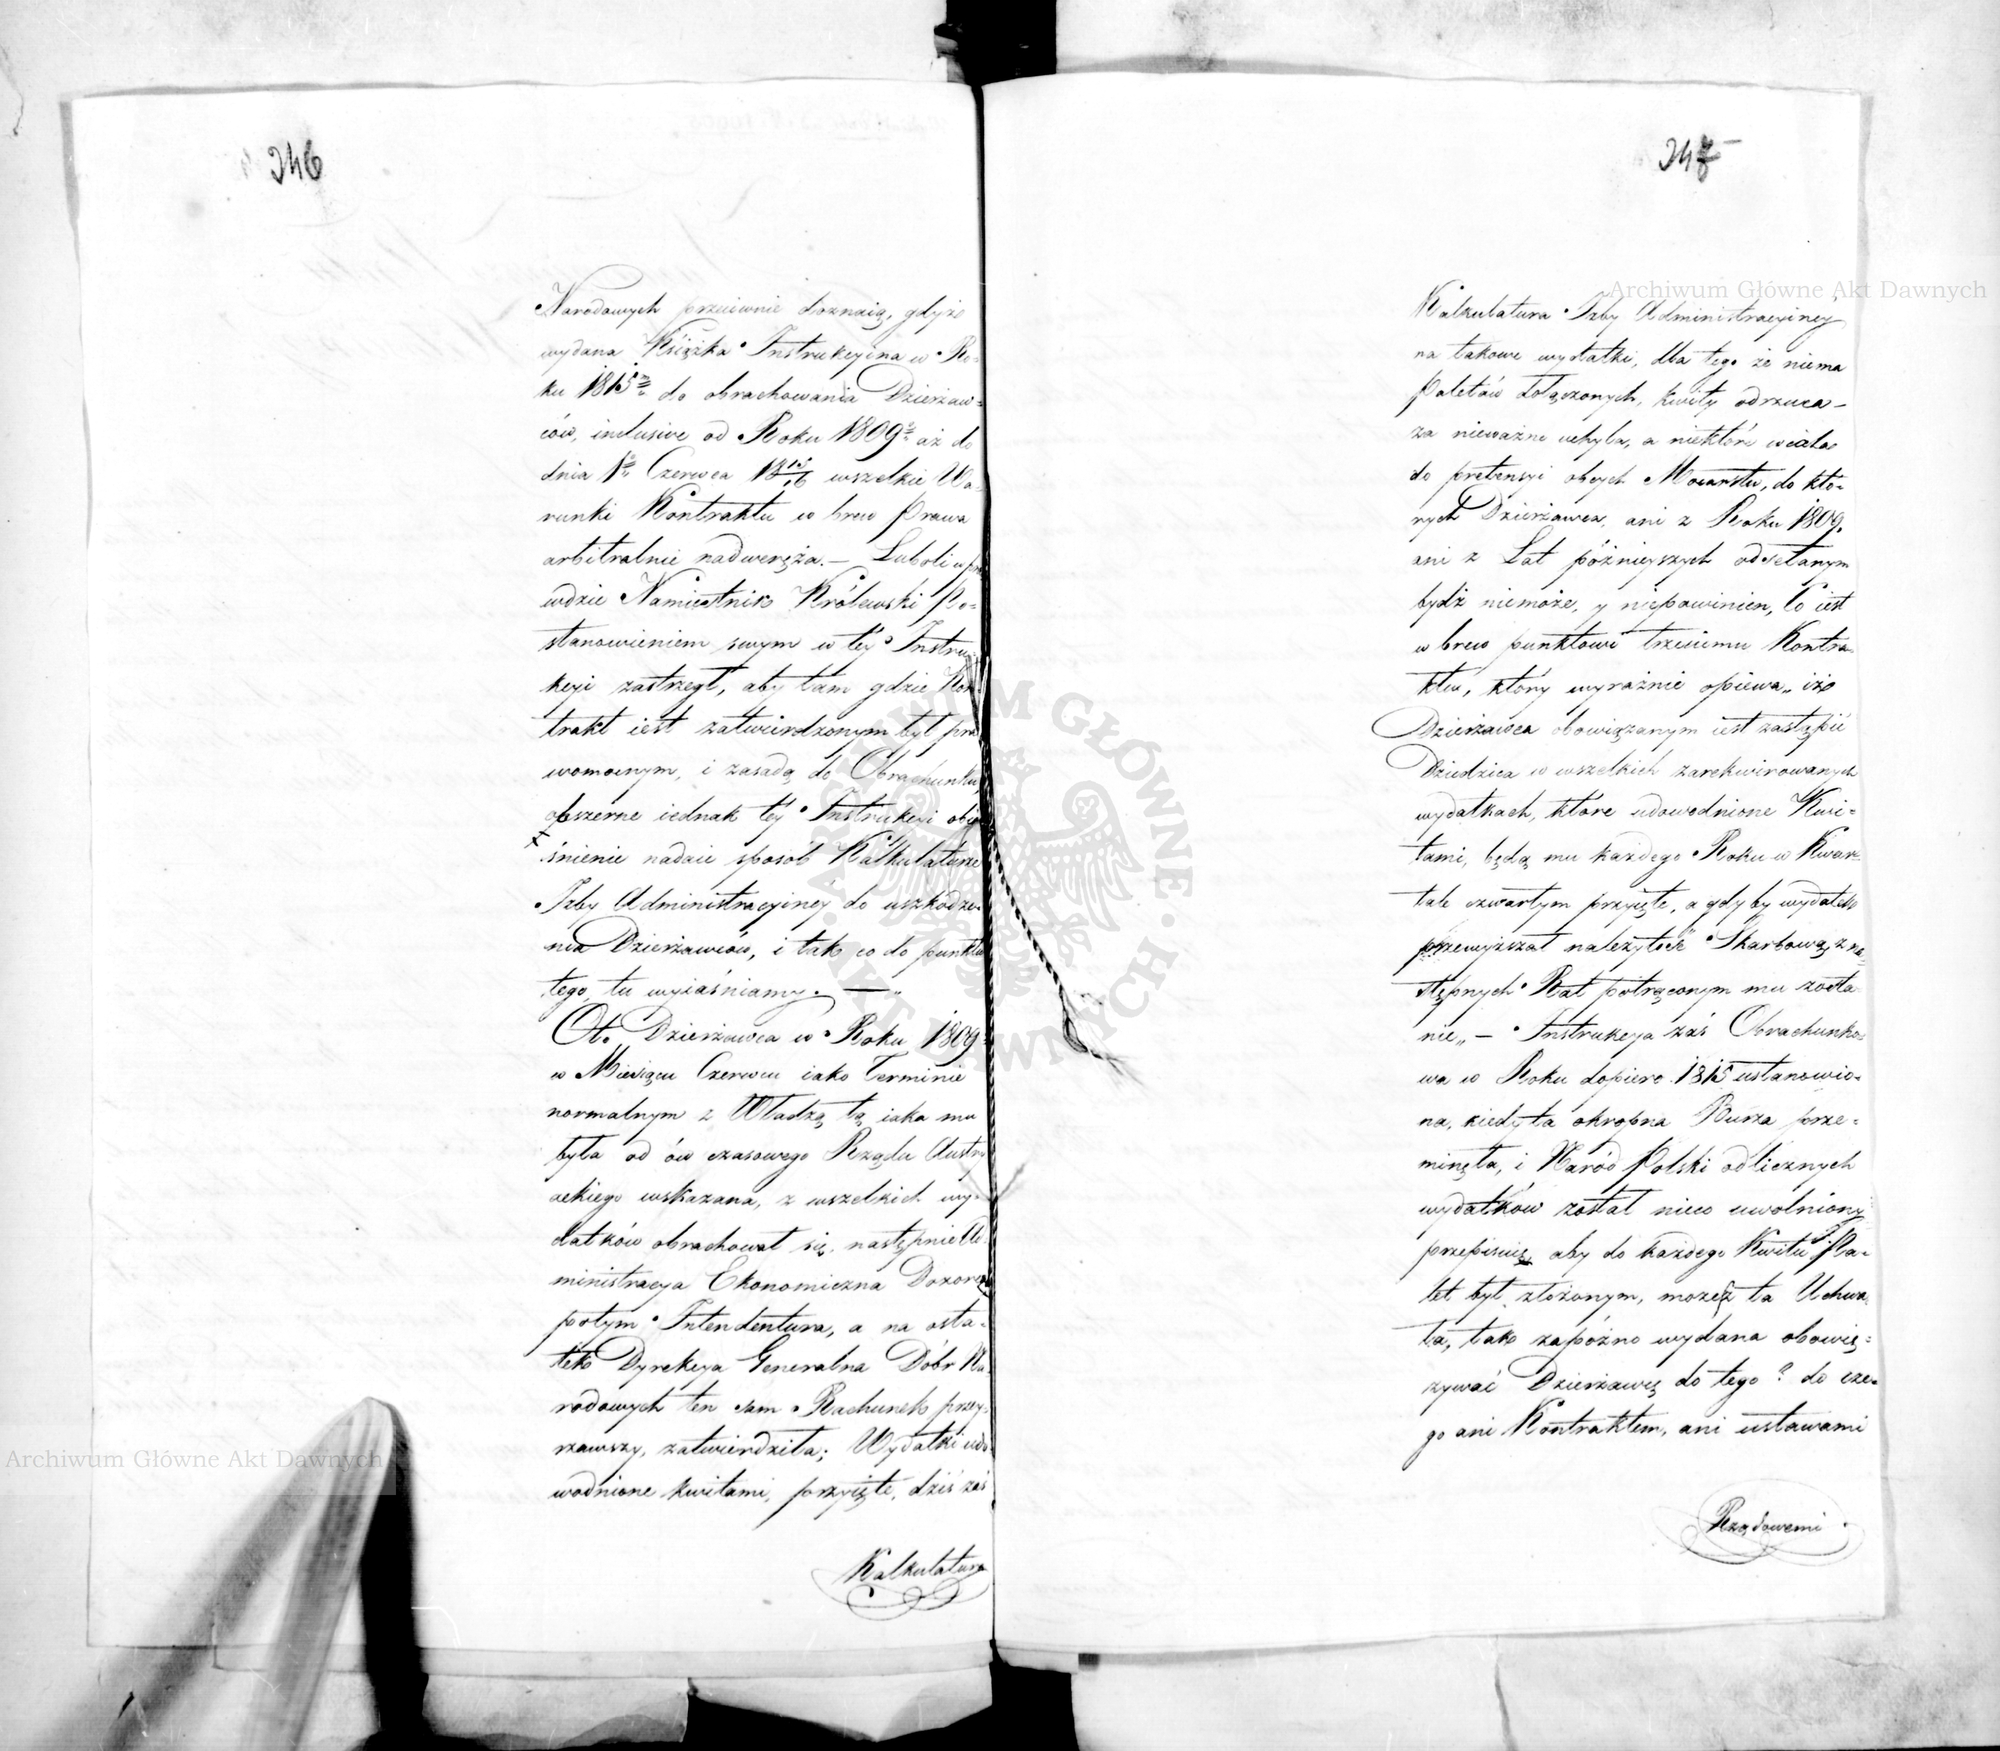 246
Narodowych przeciwnie doznaią, gdyże
wydana Książka Instrukcyina w Ro-
ku 1815 do obrachowania Dzierżaw-
ców, inclusive od Roku 1809 aż do
dnia 1 Czerwca 18 15/16 wszelkie Wa-
runki Kontraktu w brew Prawa
arbitralnie nadweręża. — Luboli w pra
wdzie Namiestnik Królewski Po-
stanowieniem swym w téy Instru-
kcyi zastrzegł, aby tam gdzie Kon-
trakt iest zatwierdzonym był pra
womocnym, i zasadą do Obrachunku,
obszerne iednak téy Instrukcyi obia
śnienie nadaie sposób Kalkulaturze
Izby Administracyinéy do uszkodze-
nia Dzierżawców, i tak co do punktu
tego, tu wyiaśniamy. —
Ot. Dzierżawca w Roku 1809
w Miesiącu Czerwcu iako Terminie
normalnym z Władzą tą iaka mu
była od ów czasowego Rządu Austry
ackiego wskazana, z wszelkich wy-
datków obrachował się, następnie Ad-
ministracya Ekonomiczna Dozorcza
potym Intendentura, a na osta-
tek Dyrekcya Generalna Dóbr Na-
rodowych ten sam Rachunek przey-
rzawszy, zatwierdziła; Wydatki udo
wodnione kwitami, przyięte, dziś zaś
Kalkulatura
247
Kalkulatura Izby Administracyiney
na takowe wydatki, dla tego że niema
Paletów dołączonych, kwity odrzuca —
za nieważne uchyla, a niektóre wciela
do pretensyi obcych Mocarstw, do któ-
rych Dzierżawca, ani z Roku 1809.
ani z Lat późnieyszych odsełanym
bydź niemoże, y niepowinien, to iest
w brew punktowi trzeciemu Kontra-
ktu, który wyraźnie opiewa „ iże
Dzierżawca obowiązanym iest zastąpić
Dziedzica w wszelkich zarekwirowanych
wydatkach, które udowodnione Kwi-
tami, będą mu każdego Roku w Kwar-
tale czwartym przyięte, a gdyby wydatek
przewyższał należytość Skarbową, z na-
stępnych Rat potrąconym mu zosta-
nie „ — Instrukcya zaś Obrachunko-
wa w Roku dopiero 1815 ustanowio-
na, kiedy ta okropna Burza prze-
minęła, i Naród Polski od licznych
wydatków został nieco uwolniony
przepisuie, aby do każdego Kwitu Pa-
let był złożonym, możeż ta Uchwa-
ła, tak zapóźno wydana obowię-
zywać Dzierżawcę do tego? do cze-
go ani Kontraktem, ani ustawami
Rządowemi
Archiwum Główne Akt Dawnych
Archiwum Główne Akt Dawnych
ARCHIWUM GŁÓWNE AKT DAWNYCH